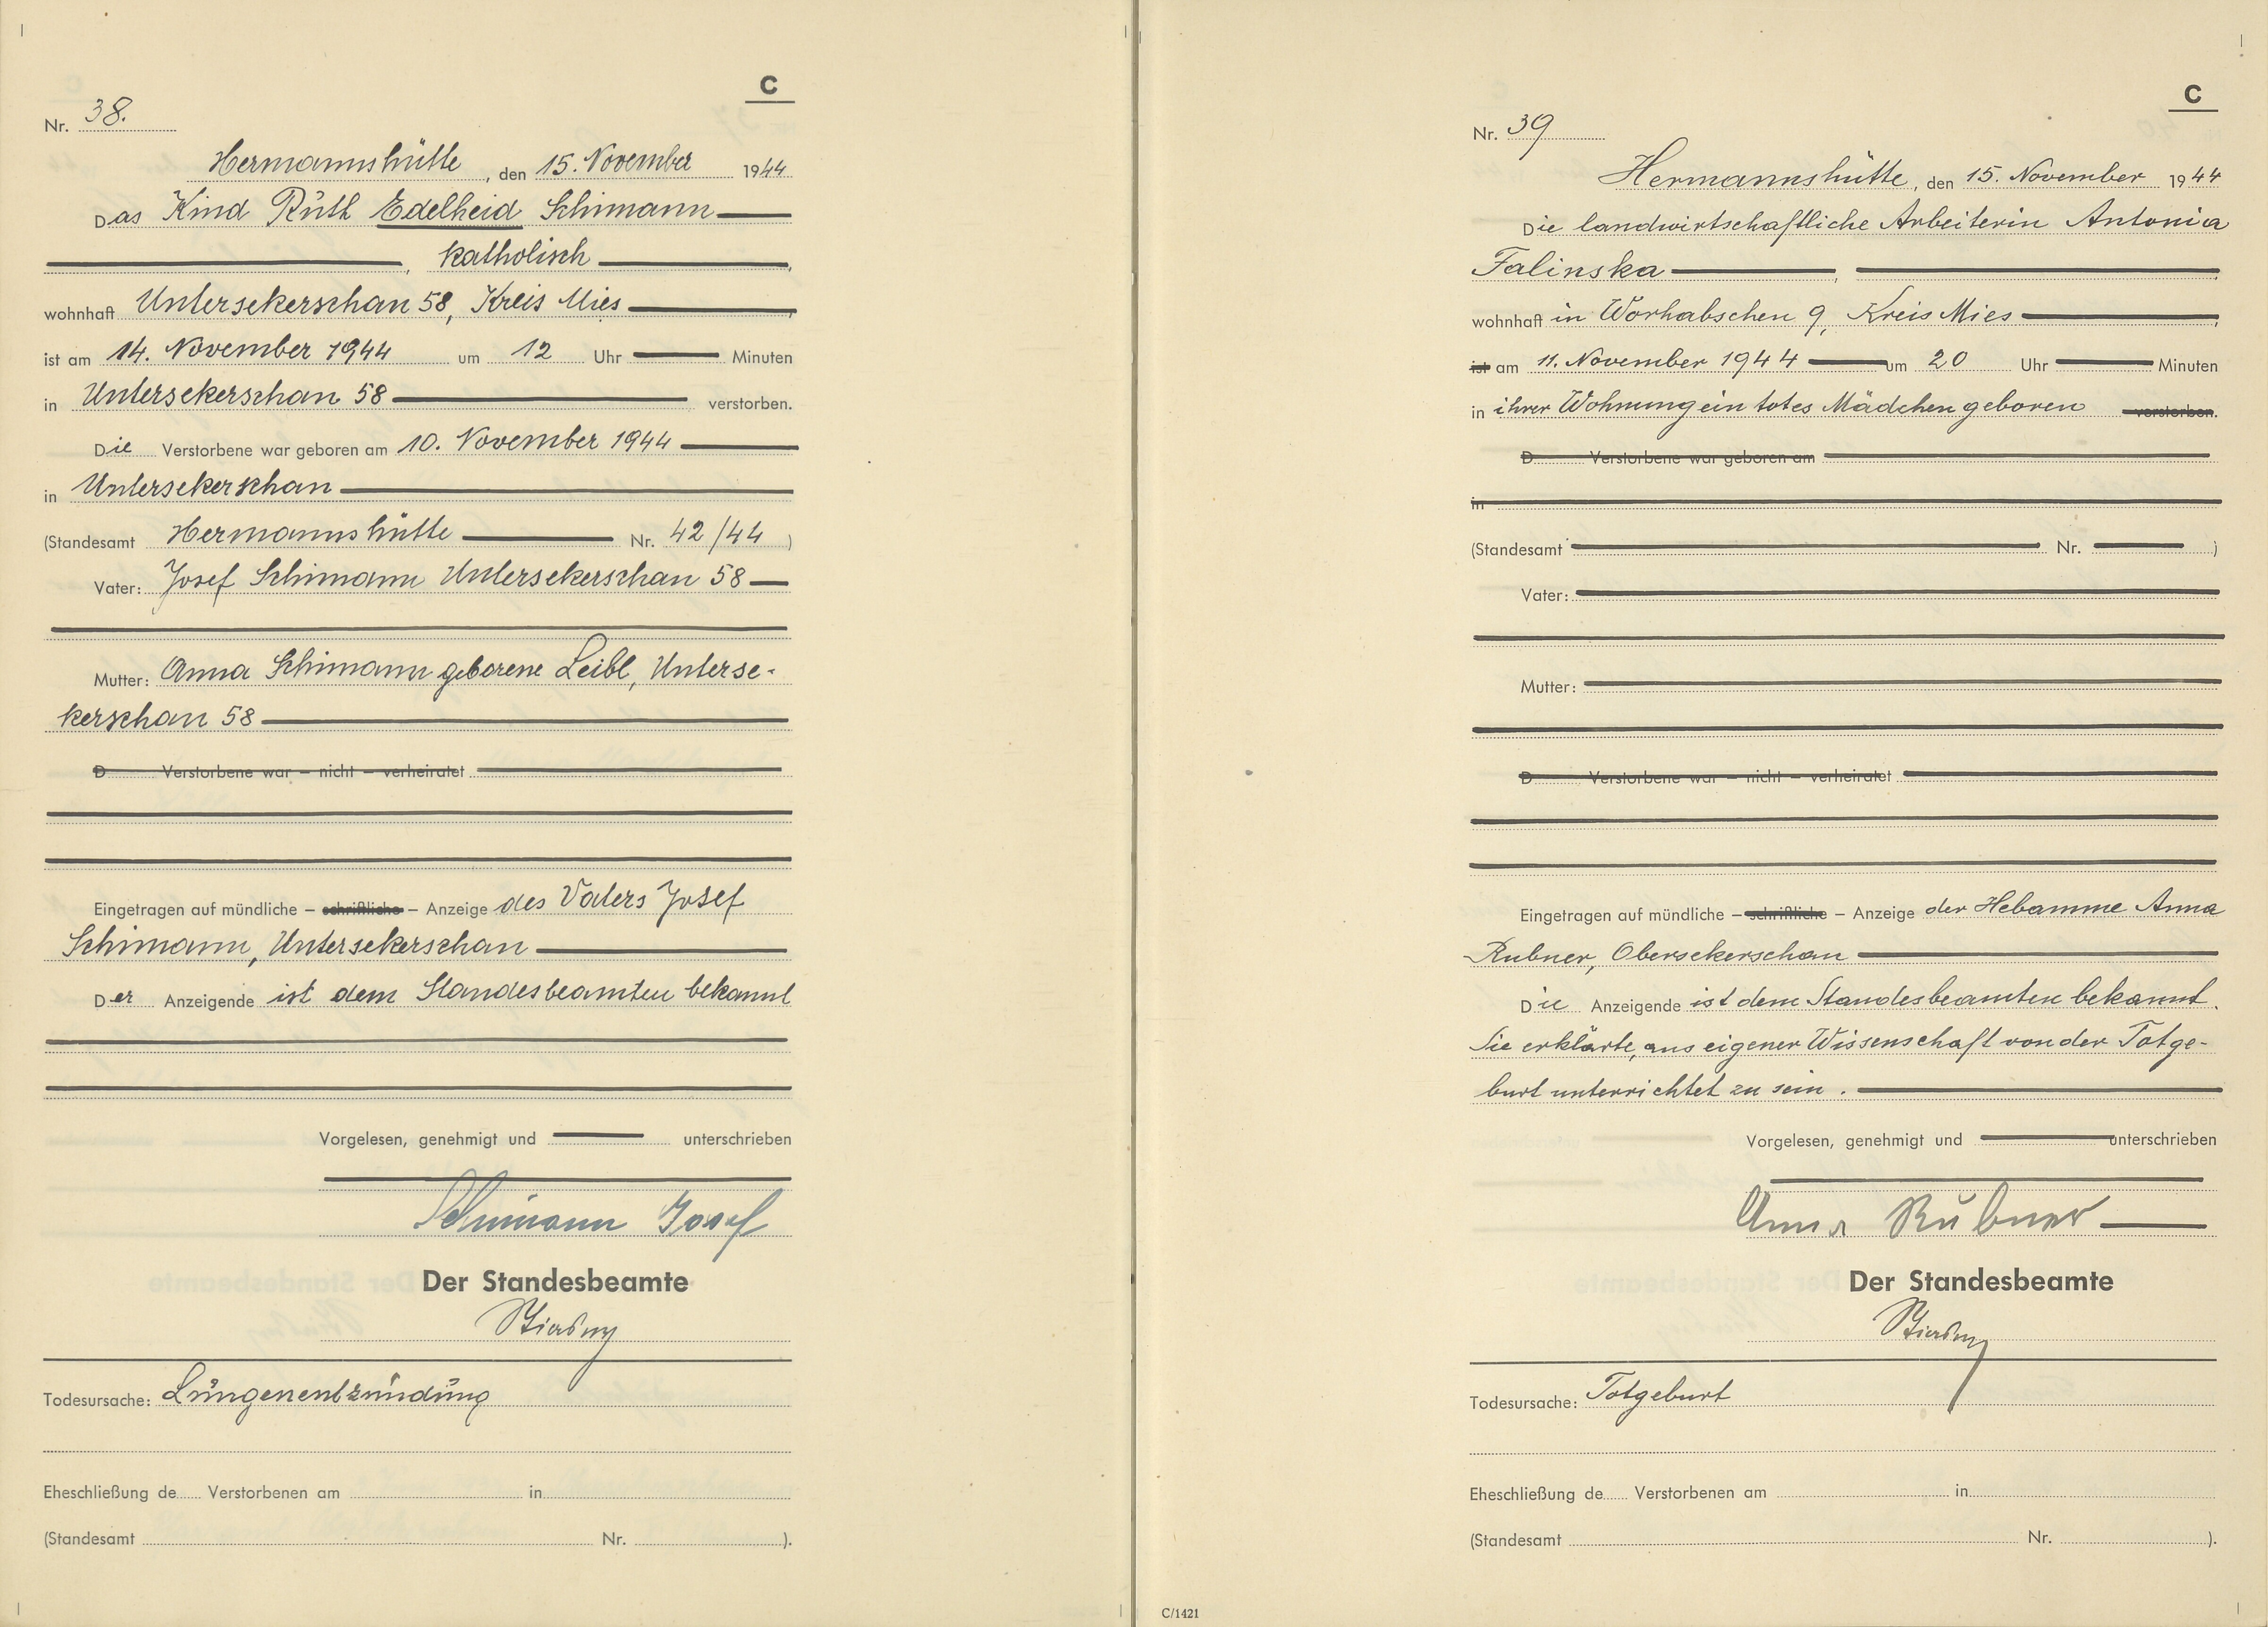 C
Nr. 38.
Hermannshütte, den 15. November 1944
Das Kind Ruth Edelheid Schimann
, katholisch,
wohnhaft Untersekerschan 58, Kreis Mies,
ist am 14. November 1944 um 12 Uhr Minuten
in Untersekerschan 58 verstorben.
Die Verstorbene war geboren am 10. November 1944
in Untersekerschan
(Standesamt Hermannshütte Nr. 42/44)
Vater: Josef Schimann Untersekerschan 58
Mutter: Anna Schimann geborene Leibl, Unterse-
kerschan 58
D Verstorbene war – nicht – verheiratet
Eingetragen auf mündliche – schriftliche – Anzeige des Vaters Josef
Schimann, Untersekerschan
Der Anzeigende ist dem Standesbeamten bekannt
Vorgelesen, genehmigt und unterschrieben
Schimann Josef
Der Standesbeamte
Todesursache: Lungenentzündung
Eheschließung de Verstorbenen am in
(Standesamt Nr. ).
C
Nr. 39
Hermannshütte, den 15. November 1944
Die landwirtschaftliche Arbeiterin Antonia
Falinska,
wohnhaft in Worhabschen 9, Kreis Mies,
ist am 11. November 1944 um 20 Uhr Minuten
in ihrer Wohnung ein totes Mädchen geboren verstorben.
D Verstorbene war geboren am
in
(Standesamt Nr. )
Vater:
Mutter:
D Verstorbene war – nicht – verheiratet
Eingetragen auf mündliche – schriftliche – Anzeige der Hebamme Anna
Rubner, Obersekerschan
Die Anzeigende ist dem Standesbeamten bekannt.
Sie erklärte, aus eigener Wissenschaft von der Totge-
burt unterrichtet zu sein.
Vorgelesen, genehmigt und unterschrieben
Anna Rubner
Der Standesbeamte
Todesursache: Totgeburt
Eheschließung de Verstorbenen am in
(Standesamt Nr. ).
C/1421